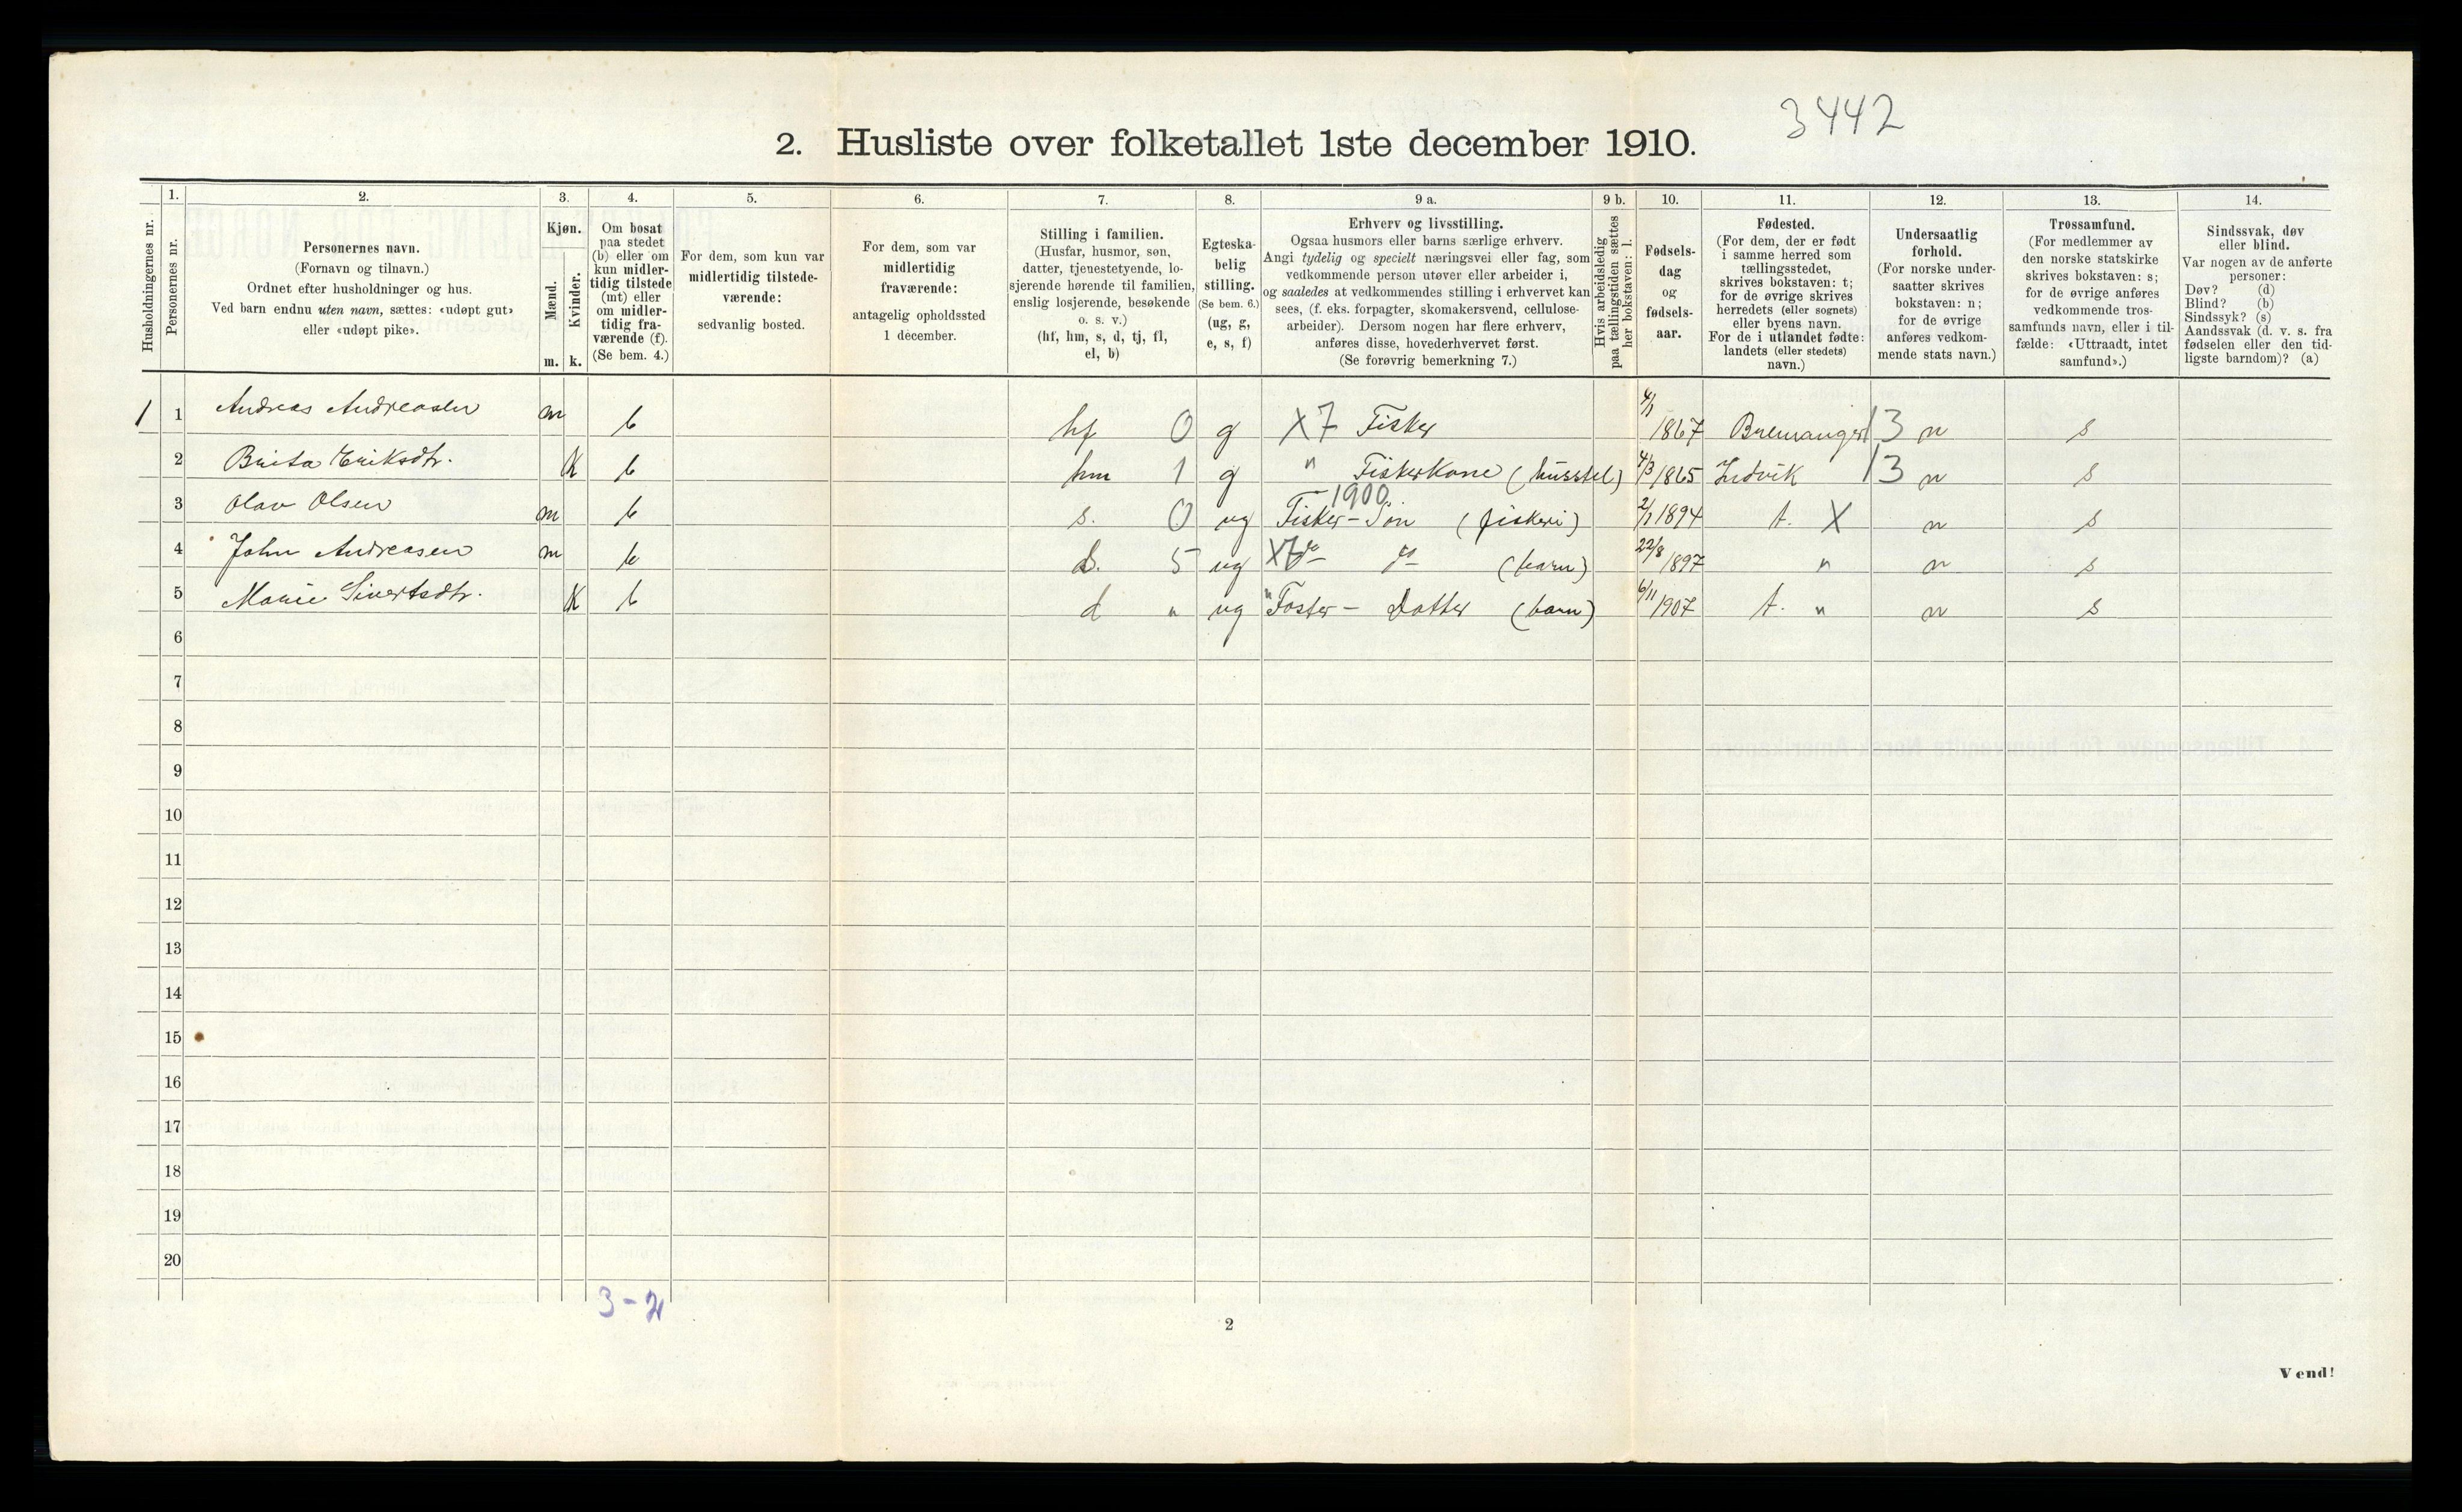 3442
2. Husliste over folketallet 1ste december 1910.
1. 2. 3. 4. 5. 6. 7. 8. 9 a. 9 b. 10. 11. 12. 13. 14.
Husholdningernes nr.
Personernes nr.
Personernes navn.
(Fornavn og tilnavn.)
Ordnet efter husholdninger og hus.
Ved barn endnu uten navn, sættes: «udøpt gut»
eller «udøpt pike».
Kjøn.
Mænd.
Kvinder.
m. k.
Om bosat
paa stedet
(b) eller om
kun midler-
tidig tilstede
(mt) eller
om midler-
tidig fra-
værende (f).
(Se bem. 4.)
For dem, som kun var
midlertidig tilstede-
værende:
sedvanlig bosted.
For dem, som var
midlertidig
fraværende:
antagelig opholdssted
1 december.
Stilling i familien.
(Husfar, husmor, søn,
datter, tjenestetyende, lo-
sjerende hørende til familien,
enslig losjerende, besøkende
o. s. v.)
(hf, hm, s, d, tj, fl,
el, b)
Egteska-
belig
stilling.
(Se bem. 6.)
(ug, g,
e, s, f)
Erhverv og livsstilling.
Ogsaa husmors eller barns særlige erhverv.
Angi tydelig og specielt næringsvei eller fag, som
vedkommende person utøver eller arbeider i,
og saaledes at vedkommendes stilling i erhvervet kan
sees, (f. eks. forpagter, skomakersvend, cellulose-
arbeider). Dersom nogen har flere erhverv,
anføres disse, hovederhvervet først.
(Se forøvrig bemerkning 7.)
Hvis arbeidsledig
paa tællingstiden sættes
her bokstaven: l.
Fødsels-
dag
og
fødsels-
aar.
Fødested.
(For dem, der er født
i samme herred som
tællingsstedet,
skrives bokstaven: t;
for de øvrige skrives
herredets (eller sognets)
eller byens navn.
For de i utlandet fødte:
landets (eller stedets)
navn.)
Undersaatlig
forhold.
(For norske under-
saatter skrives
bokstaven: n;
for de øvrige
anføres vedkom-
mende stats navn.)
Trossamfund.
(For medlemmer av
den norske statskirke
skrives bokstaven: s;
for de øvrige anføres
vedkommende tros-
samfunds navn, eller i til-
fælde: «Uttraadt, intet
samfund».)
Sindssvak, døv
eller blind.
Var nogen av de anførte
personer:
Døv? (d)
Blind? (b)
Sindssyk? (s)
Aandssvak (d. v. s. fra
fødselen eller den tid-
ligste barndom)? (a)
1 1 Andreas Andreasen m b hf 0 g X7 Fisker 4/1 1867 Bremanger 13 n s
2 Brita Eriksdtr. K b hm 1 g " Fiskerkone (husstel) 4/3 1865 13 n s
1900
3 Olav Olsen m b s. 0 ug Fisker-Søn (fiskeri) 2/1 1894 t. X n s
4 John Andreasen m b 5 ug X7 do do (barn) 22/8 1897 " n s
5 Marie Sivertsdtr. K b d " ug " Foster- Datter (barn) 6/11 1907 t. " n s
6
7
8
9
10
11
12
13
14
15
16
17
18
19
20
3-2
2
Vend!